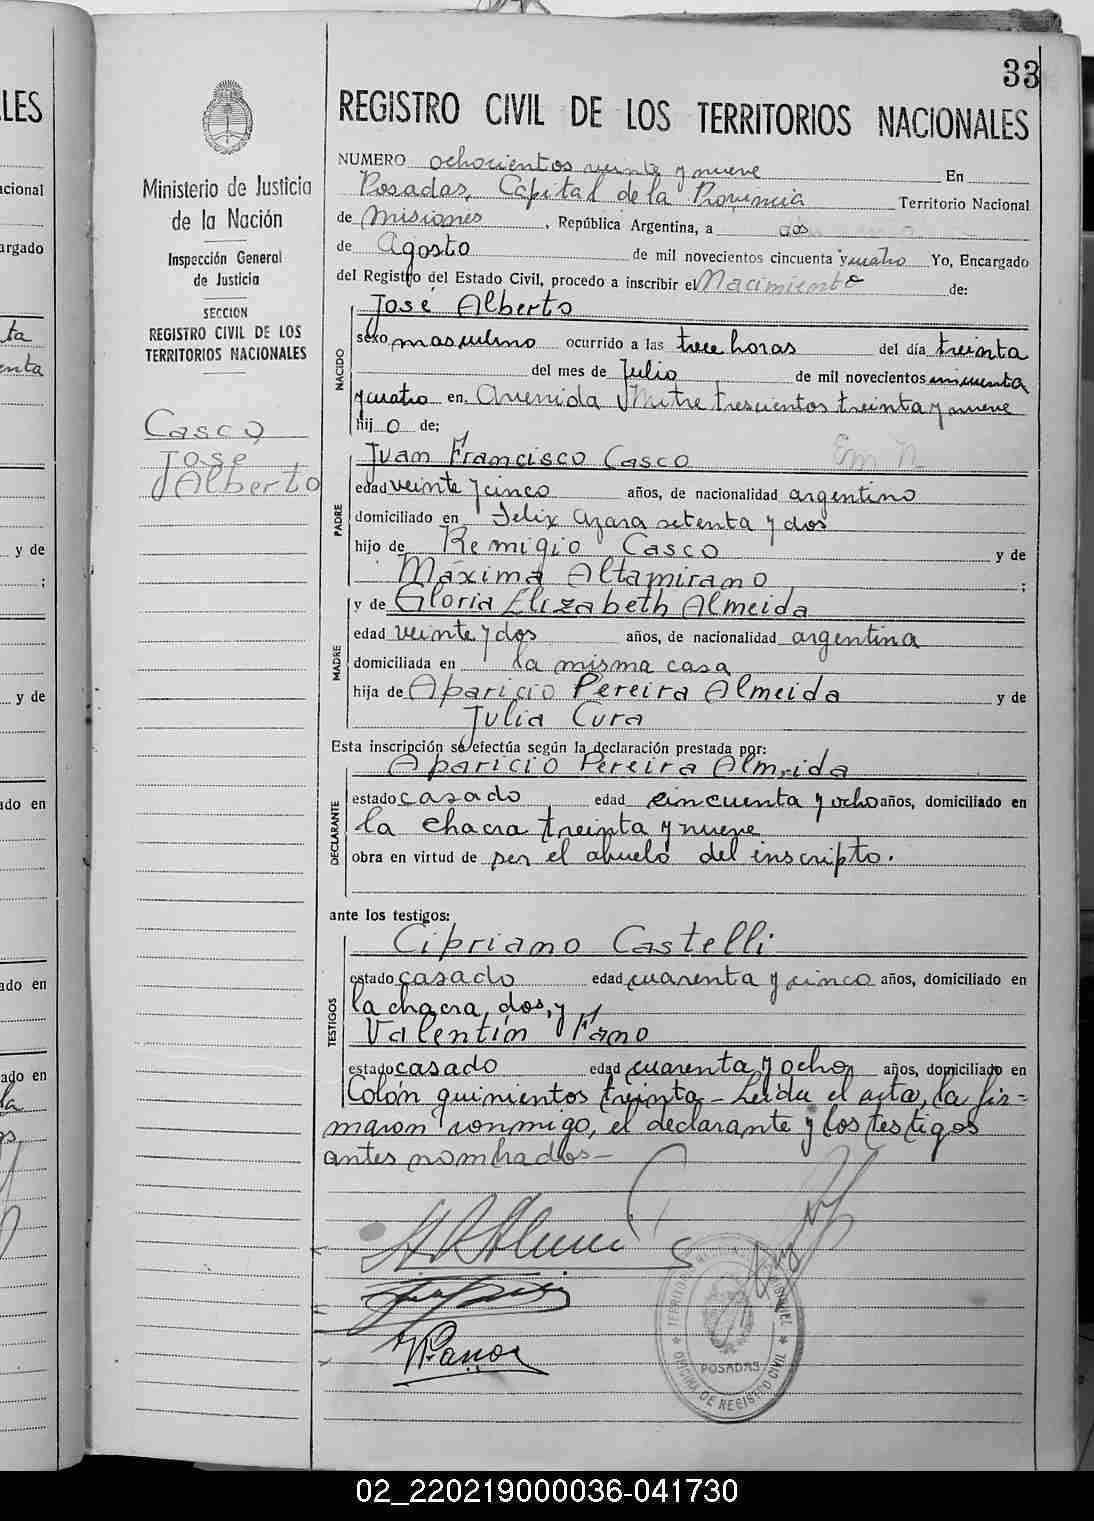 33
REGISTRO CIVIL DE LOS TERRITORIOS NACIONALES
Ministerio de Justicia
de la Nación
Inspección General
de Justicia
SECCION
REGISTRO CIVIL DE LOS
TERRITORIOS NACIONALES
Casco
José
Alberto
NUMERO ochocientos veinte y nueve En
Posadas, Capital de la Provincia Territorio Nacional
de Misiones, República Argentina, a dos
de Agosto de mil novecientos cincuenta y cuatro Yo, Encargado
del Registro del Estado Civil, procedo a inscribir el Nacimiento de:
José Alberto
NACIDO
sexo masculino ocurrido a las trece horas del día treinta
del mes de Julio de mil novecientos cincuenta
y cuatro en Avenida Mitre trescientos treinta y nueve
hij o de:
Juan Francisco Casco
PADRE
edad veinte y cinco años, de nacionalidad argentino
domiciliado en Felix Azara setenta y dos
hijo de Remigio Casco y de
Máxima Altamirano ;
y de Gloria Elizabeth Almeida
MADRE
edad veinte y dos años, de nacionalidad argentina
domiciliada en la misma casa
hija de Aparicio Pereira Almeida y de
Julia Cura
Esta inscripción se efectúa según la declaración prestada por:
Aparicio Pereira Almeida
DECLARANTE
estado casado edad cincuenta y ocho años, domiciliado en
la chacra treinta y nueve
obra en virtud de ser el abuelo del inscripto.
ante los testigos:
Cipriano Castelli
TESTIGOS
estado casado edad cuarenta y cinco años, domiciliado en
la chacra dos, y
Valentín Fano
estado casado edad cuarenta y ocho años, domiciliado en
Colón quinientos treinta – Leida el acta, la fir=
maron conmigo, el declarante y los testigos
antes nombrados –
POSADAS
OFICINA DE REGISTRO CIVIL
02_220219000036-041730